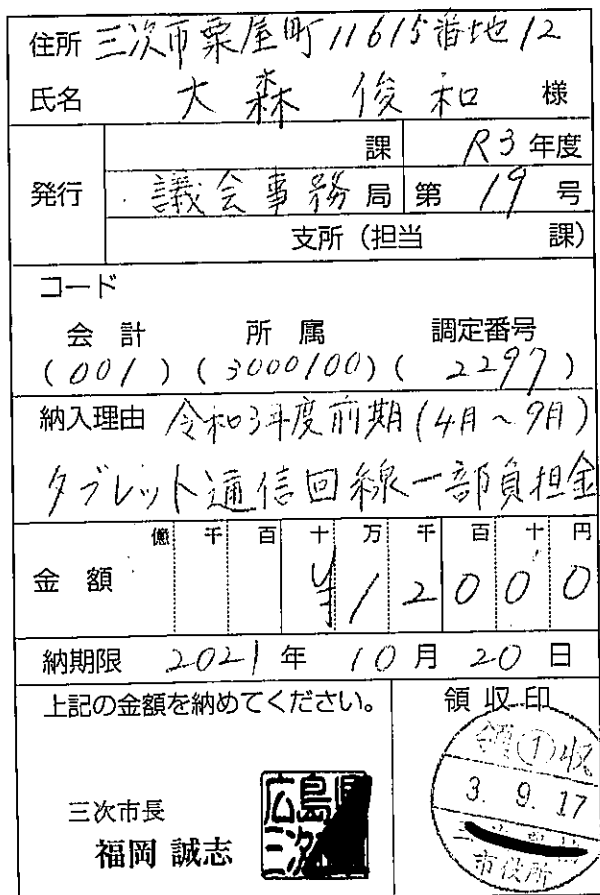 住所 三次市粟屋町11615番地12
氏名 大森 俊和 様
発行
課 R3 年度
議会事務局 第 19 号
支所(担当 課)
コード
会計 所属 調定番号
(001) (3000100) (2297)
納入理由 令和3年度前期(4月～9月)
タブレット通信回線一部負担金
億 千 百 十 万 千 百 十 円
金額 ¥12000
納期限 2021年10月20日
上記の金額を納めてください。
領収印
領①収
3. 9. 17
市役所
三次市長
福岡 誠志
広島
三次